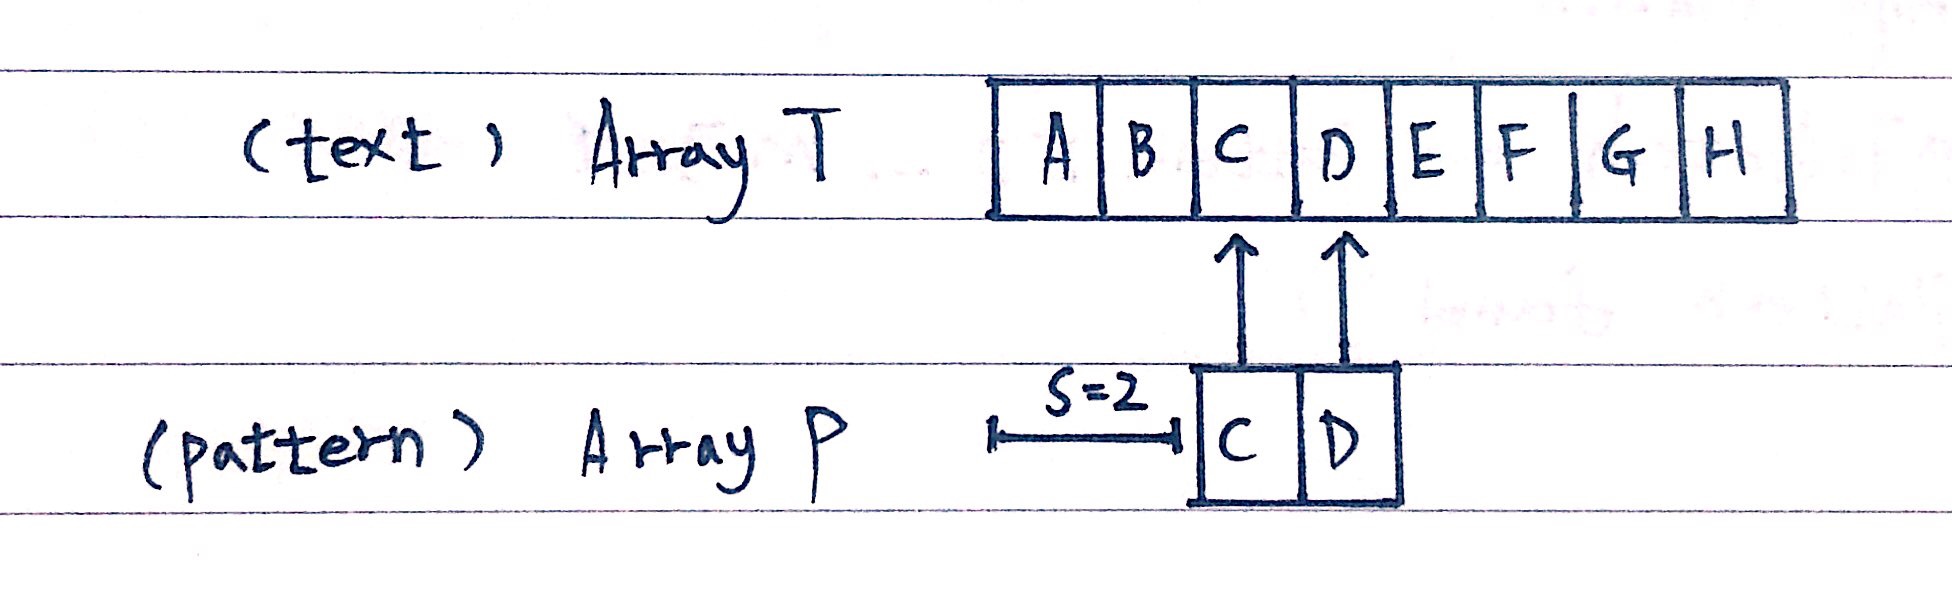 (text) Array T A B C D E F G H
S=2
(pattern) Array P C D